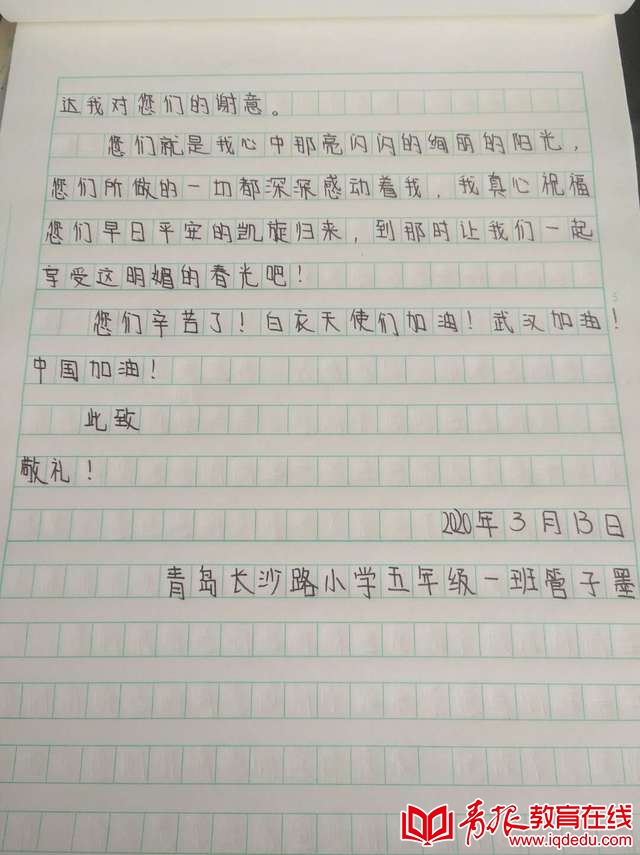 达我对您们的谢意。
您们就是我心中那亮闪闪的绚丽的阳光，
您们所做的一切都深深感动着我，我真心祝福
您们早日平安的凯旋归来，到那时让我们一起
享受这明媚的春光吧！
您们辛苦了！白衣天使们加油！武汉加油！
中国加油！
此致
敬礼！
2020年3月13日
青岛长沙路小学五年级一班管子墨
青报教育在线
www.iqdedu.com